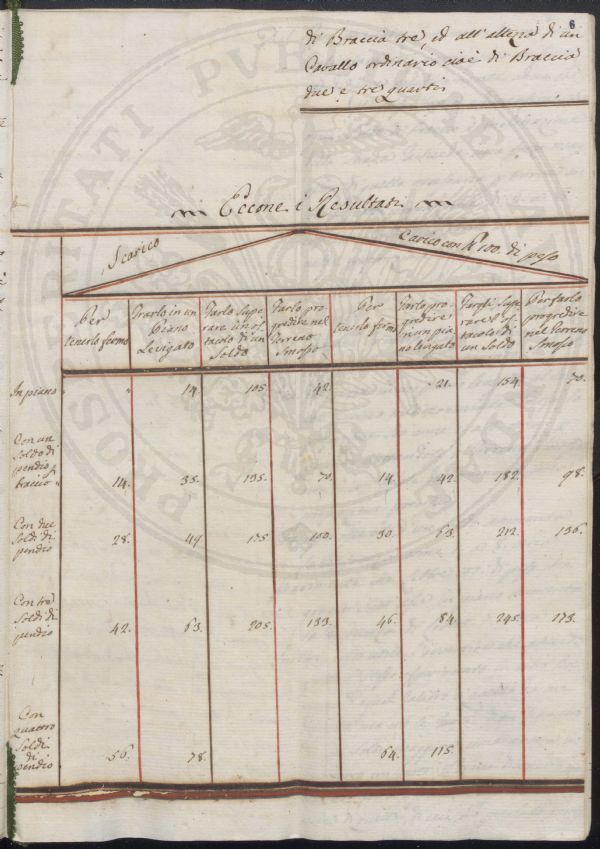 6
di Braccia tre, ed all'altezza di un
Cavallo ordinario cioè di Braccia
due e tre quarti
Eccone i Resultati
Scarico
Carico con 100. di peso
Per tenerlo fermo
Trarlo in un Piano Levigato
Farlo superare un ostacolo di un Soldo
Farlo progredire nel Terreno Smosso
Per tenerlo fermo
Farlo progredire in un piano levigato
Fargli superare l'ostacolo di un Soldo
Per farlo progredire nel Terreno Smosso
In piano " " 14. 105. 42. 21. 154. 70.
Con un Soldo di pendio p braccio " 14. 35. 135. 70. 14. 42. 182. 98.
Con due Soldi di pendio 28. 49 175 100. 30. 63. 212. 136.
Con tre Soldi di pendio 42. 63. 205. 133. 46. 84. 245. 173.
Con quattro Soldi di pendio 56. 78. 64. 115
PROSPERITATI PVBLICAE